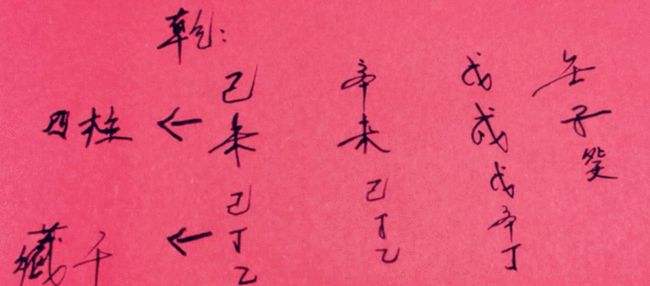 乾：
己 辛 戊 壬
四柱 ← 未 未 戌 子
藏干 ← 己丁乙 己丁乙 戊辛丁 癸